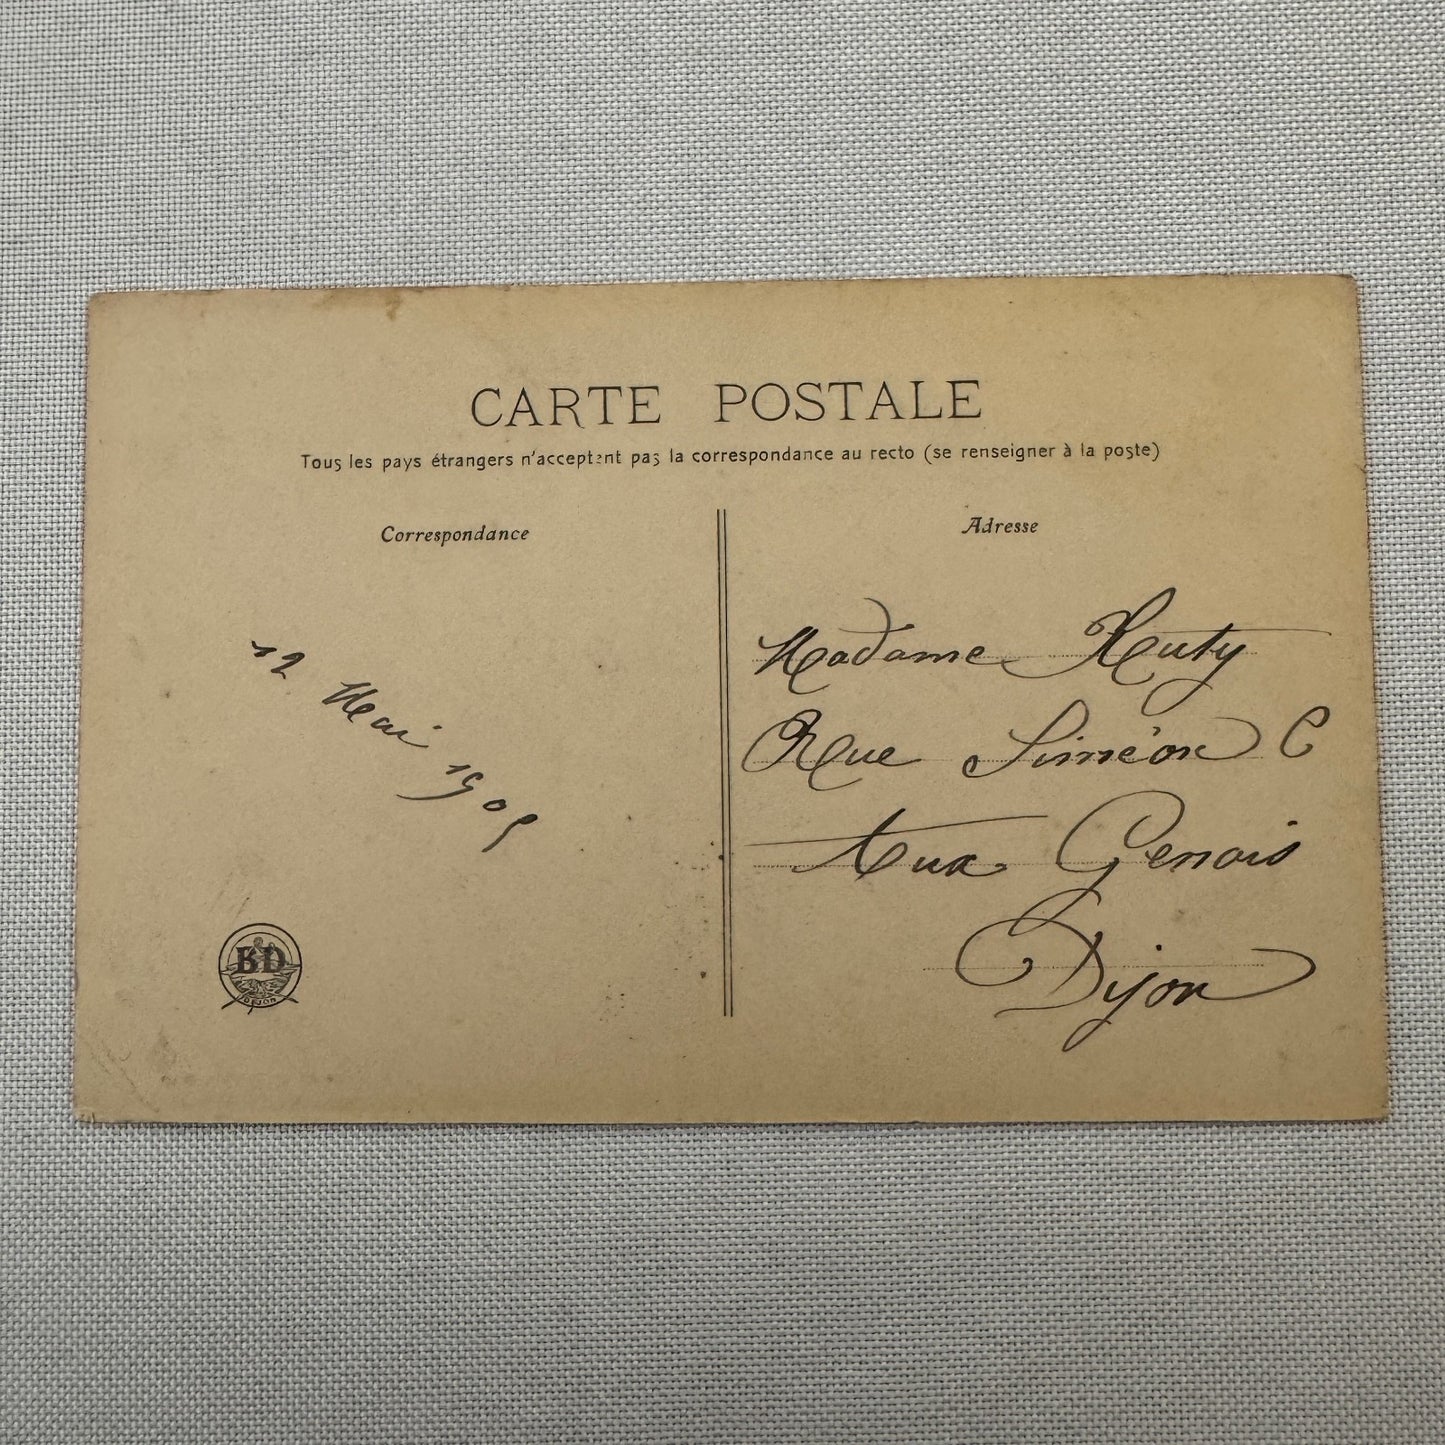 CARTE POSTALE
Tous les pays étrangers n'acceptent pas la correspondance au recto (se renseigner à la poste)
Correspondance
12 Mai 1905
BD
DIJON
Adresse
Madame Huty
Rue Siméon C
Aux Genois
Dijon